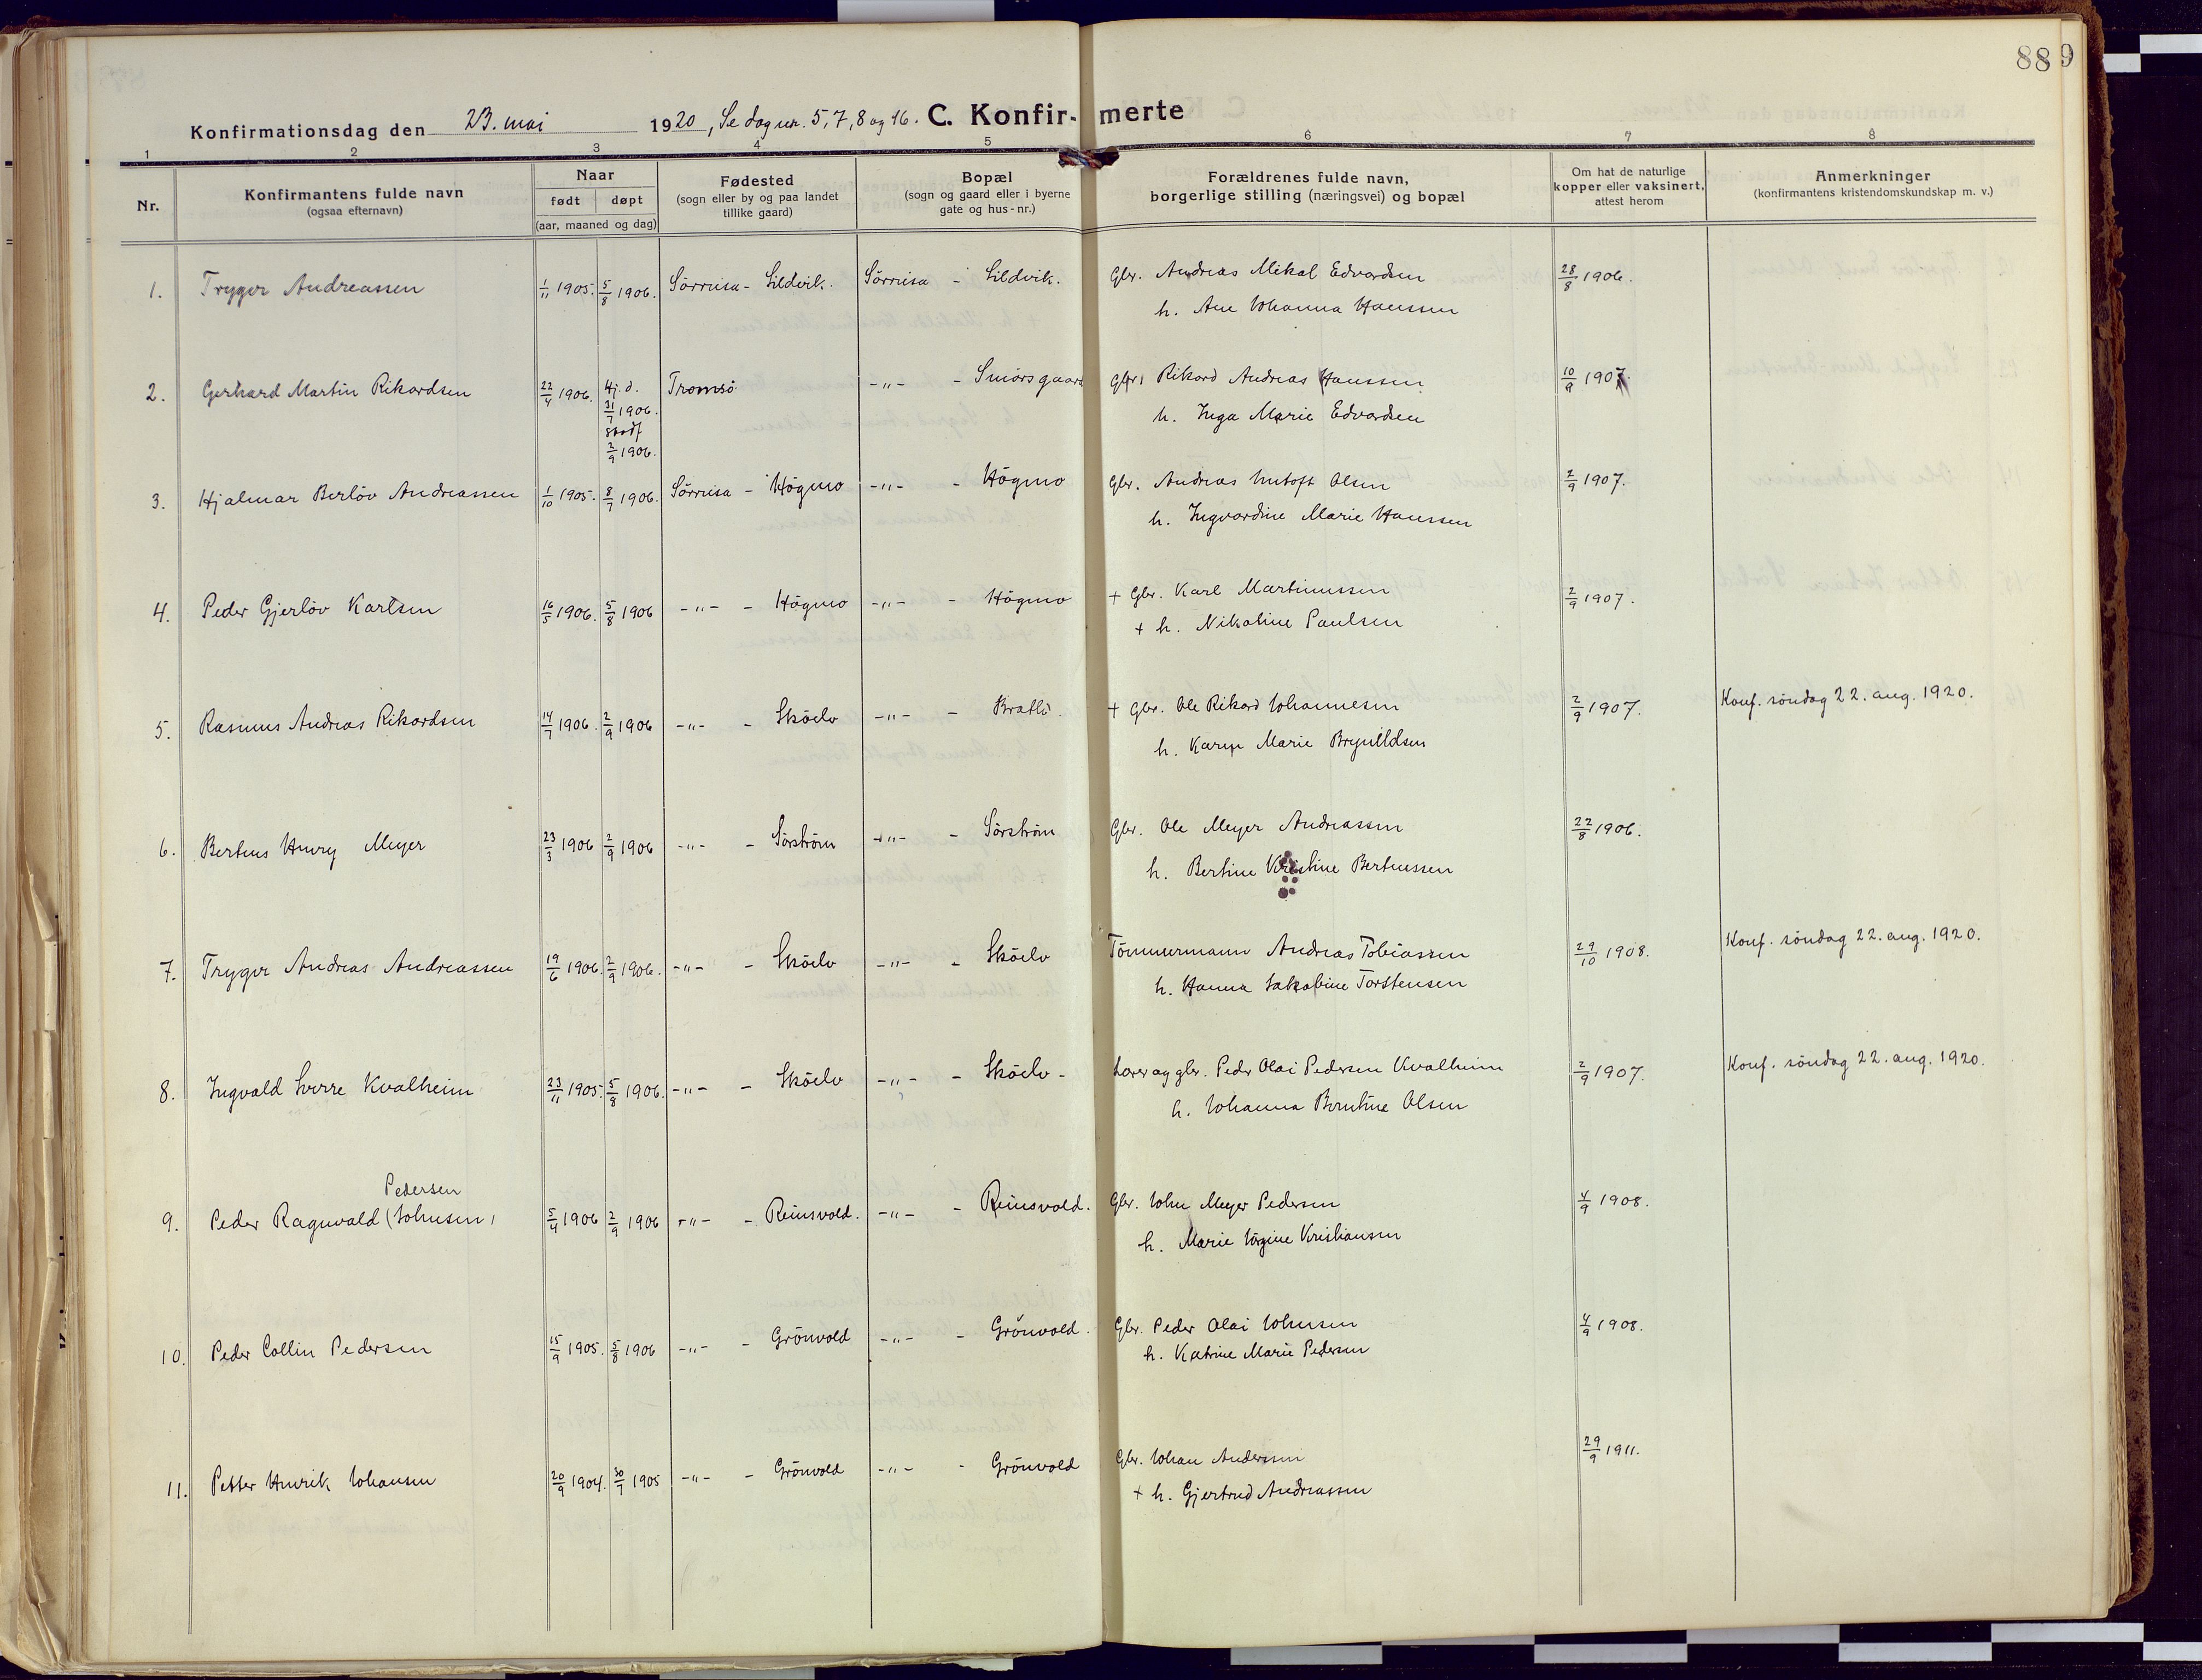 889
Konfirmationsdag den 23. mai 1920, Se dog nr. 5, 7, 8 og 16. C. Konfirmerte
1 2 3 4 5 6 7 8
Nr.
Konfirmantens fulde navn
(ogsaa efternavn)
Naar
født døpt
(aar, maaned og dag)
Fødested
(sogn eller by og paa landet
tillike gaard)
Bopæl
(sogn og gaard eller i byerne
gate og hus-nr.)
Forældrenes fulde navn,
borgerlige stilling (næringsvei) og bopæl
Om hat de naturlige
kopper eller vaksinert,
attest herom
Anmerkninger
(konfirmantens kristendomskundskap m. v.)
1. Trygve Andreassen 1/11 1905. 5/8 1906. Sörreisa - Sildvik. Sörreisa - Sildvik. Gbr. Andreas Mikal Edvardsen 28/8 1906.
h. Ane Johanna Hanssen
2. Gerhard Martin Rikardsen 22/4 1906. Hj.d. Tromsö -"- - Smörsgaard Gbr. Rikard Andreas Hanssen 10/9 1907.
31/7 1906. h. Inga Marie Edvardsen
stadf
2/9 1906.
3. Hjalmar Berlöv Andreassen 1/10 1905. 8/7 1906. Sörreisa - Högmo -"- - Högmo Gbr. Andreas Olsen 2/9 1907.
h. Ingvardine Marie Hanssen
4. Peder Gjerlöv Karlsen 16/5 1906. 5/8 1906 -"- - Högmo -"- - Högmo + Gbr. Karl Martinussen 2/9 1907.
+ h. Nikoline Paulsen
5. Rasmus Andreas Rikardsen 14/7 1906. 2/9 1906 -"- - Sköelv -"- - Bratli. + Gbr. Ole Rikard Johannesen 2/9 1907. Konf. söndag 22. aug. 1920.
h. Karen Marie Brynildsen
6. Berteus Henry Meyer 23/3 1906 2/9 1906 -"- - Sörström -"- - Sörström Gbr. Ole Meyer Andreassen 22/8 1906.
h. Bertine Kristine Berteussen
7. Trygve Andreas Andreassen 19/6 1906. 2/9 1906. -"- - Sköelv -"- - Sköelv Tömmermann Andreas Tobiassen 29/10 1908. Konf. söndag 22. aug. 1920.
h. Hanna Jakobine Torstensen
8. Ingvald Sverre Kvalheim 23/11 1905. 5/8 1906. -"- - Sköelv -"- - Sköelv - Lærer og gbr. Peder Olai Pedersen Kvalheim 2/9 1907. Konf. söndag 22. aug. 1920.
h. Johanna Berntine Olsen
Pedersen
9. Peder Ragnvald (Johnsen) 5/4 1906 2/9 1906 -"- - Reinsvold. -"- - Reinsvold. Gbr. John Meyer Pedersen 4/9 1908.
h. Marie Jörgine Kristiansen
10. Peder Collin Pedersen 15/9 1905. 5/8 1906 -"- - Grönvold -"- - Grönvold. Gbr. Peder Olai Johnsen 4/9 1908.
h. Katrine Marie Pedersen
11. Petter Henrik Johansen 20/9 1904. 30/7 1905 -"- - Grönvold -"- - Grönvold Gbr. Johan Andersen 29/9 1911.
+ h. Gjertrud Andreassen